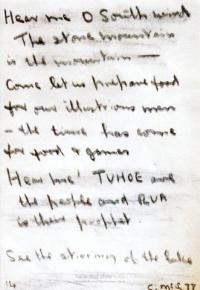 Hear me O South wind
The stone mountain
is the mountain —
Come let us prepare food
for our illustrious men
- the time has come
for food & games
Hear me! TUHOE are
the people and RUA
is their prophet
See the stirring of the lake
14
C. McC 77